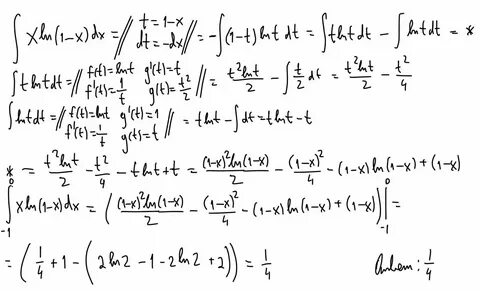 ∫ x ln(1-x) dx = // t = 1-x  dt = -dx // = -∫(1-t) ln t dt = ∫ t ln t dt - ∫ ln t dt = *
∫ t ln t dt = // f(t) = ln t  g'(t) = t  f'(t) = 1/t  g(t) = t²/2 // = t² ln t/2 - ∫ t/2 dt = t² ln t/2 - t²/4
∫ ln t dt = // f(t) = ln t  g'(t) = 1  f'(t) = 1/t  g(t) = t // = t ln t - ∫ dt = t ln t - t
* = t² ln t/2 - t²/4 - t ln t + t = (1-x)² ln(1-x)/2 - (1-x)²/4 - (1-x) ln(1-x) + (1-x)
∫₋₁⁰ x ln(1-x) dx = ((1-x)² ln(1-x)/2 - (1-x)²/4 - (1-x) ln(1-x) + (1-x))|₋₁⁰ =
= (1/4 + 1 - (2 ln 2 - 1 - 2 ln 2 + 2)) = 1/4  : 1/4